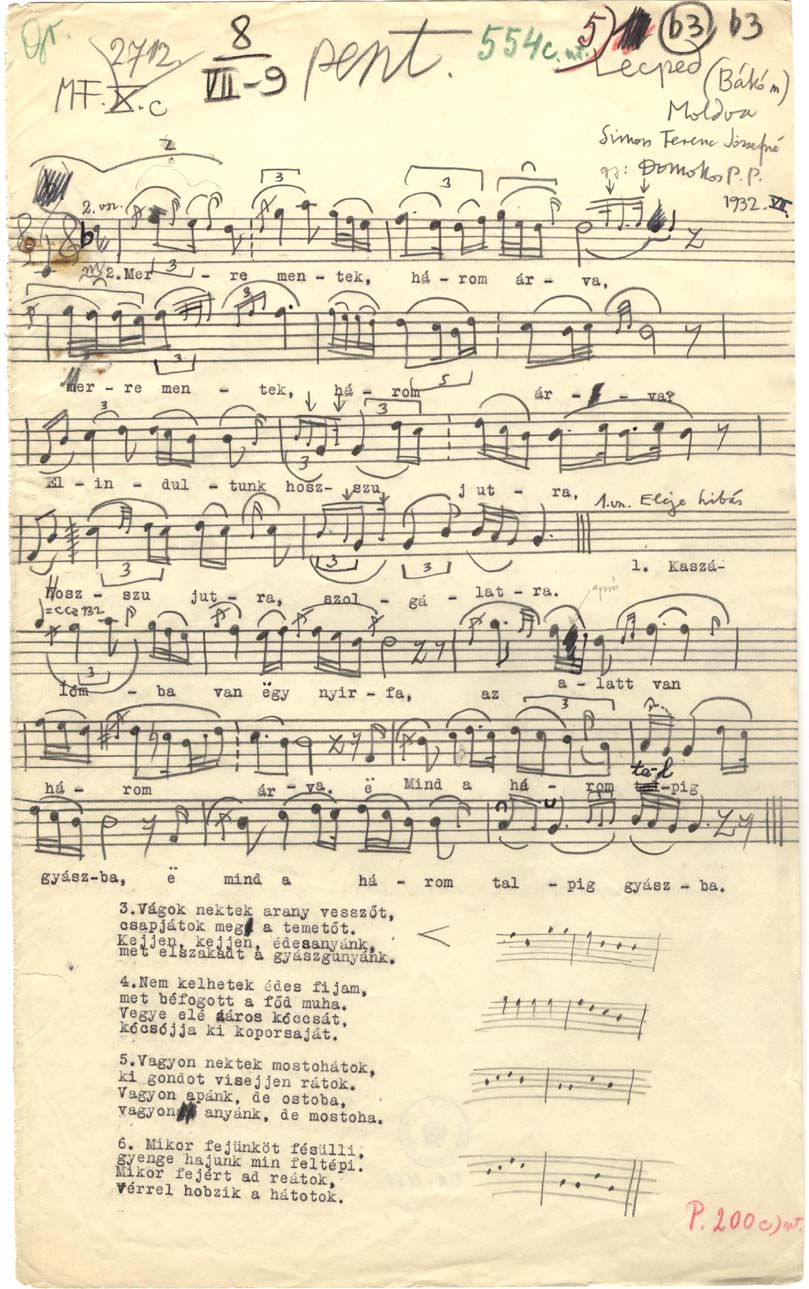 2712.
8
VII-9
pent.
554c. nt.
5)
b3 b3
MF. X. c
Lécped
(Bákó m)
Moldva
Simon Ferenc Józsefné
gy: Domokos P.P.
1932. VII.
2. vsz.
2.Mer - re men - tek, há - rom ár - va,
Mer - re men - tek, há - rom ár - va?
El - in - dul - tunk hosz - szu jut - ra, 1.vsz. Eleje hibás
Hosz - szu jut - ra, szol - gá - lat - ra. 1. Kaszá-
=ccc 132
lóm - ba van ëgy nyir - fa, az a - latt van
há - rom ár - va. ë Mind a há - rom ta-l -pig
gyász-ba, ë mind a há - rom tal - pig gyász - ba.
3.Vágok nektek arany vesszőt,
csapjátok meg a temetőt.
Kejjen, kejjen, édesanyánk,
met elszakadt a gyászgunyánk.
4.Nem kelhetek édes fijam,
met béfogott a főd muha.
Vegye elé záros kóccsát,
kócsójja ki koporsaját.
5.Vagyon nektek mostohátok,
ki gondot visejjen rátok.
Vagyon apánk, de ostoba,
vagyon anyánk, de mostoha.
6. Mikor fejünköt fésülli,
gyenge hajunk min feltépi.
Mikor fejért ad reátok,
Vérrel hobzik a hátotok.
P. 200c) nt.